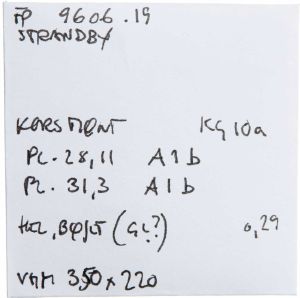 FP 9606.19
STRANDBY
KG 10a
PL. 28,11 A1b
PL. 31,3 A1b
(GL?) 0,29
350 x 220